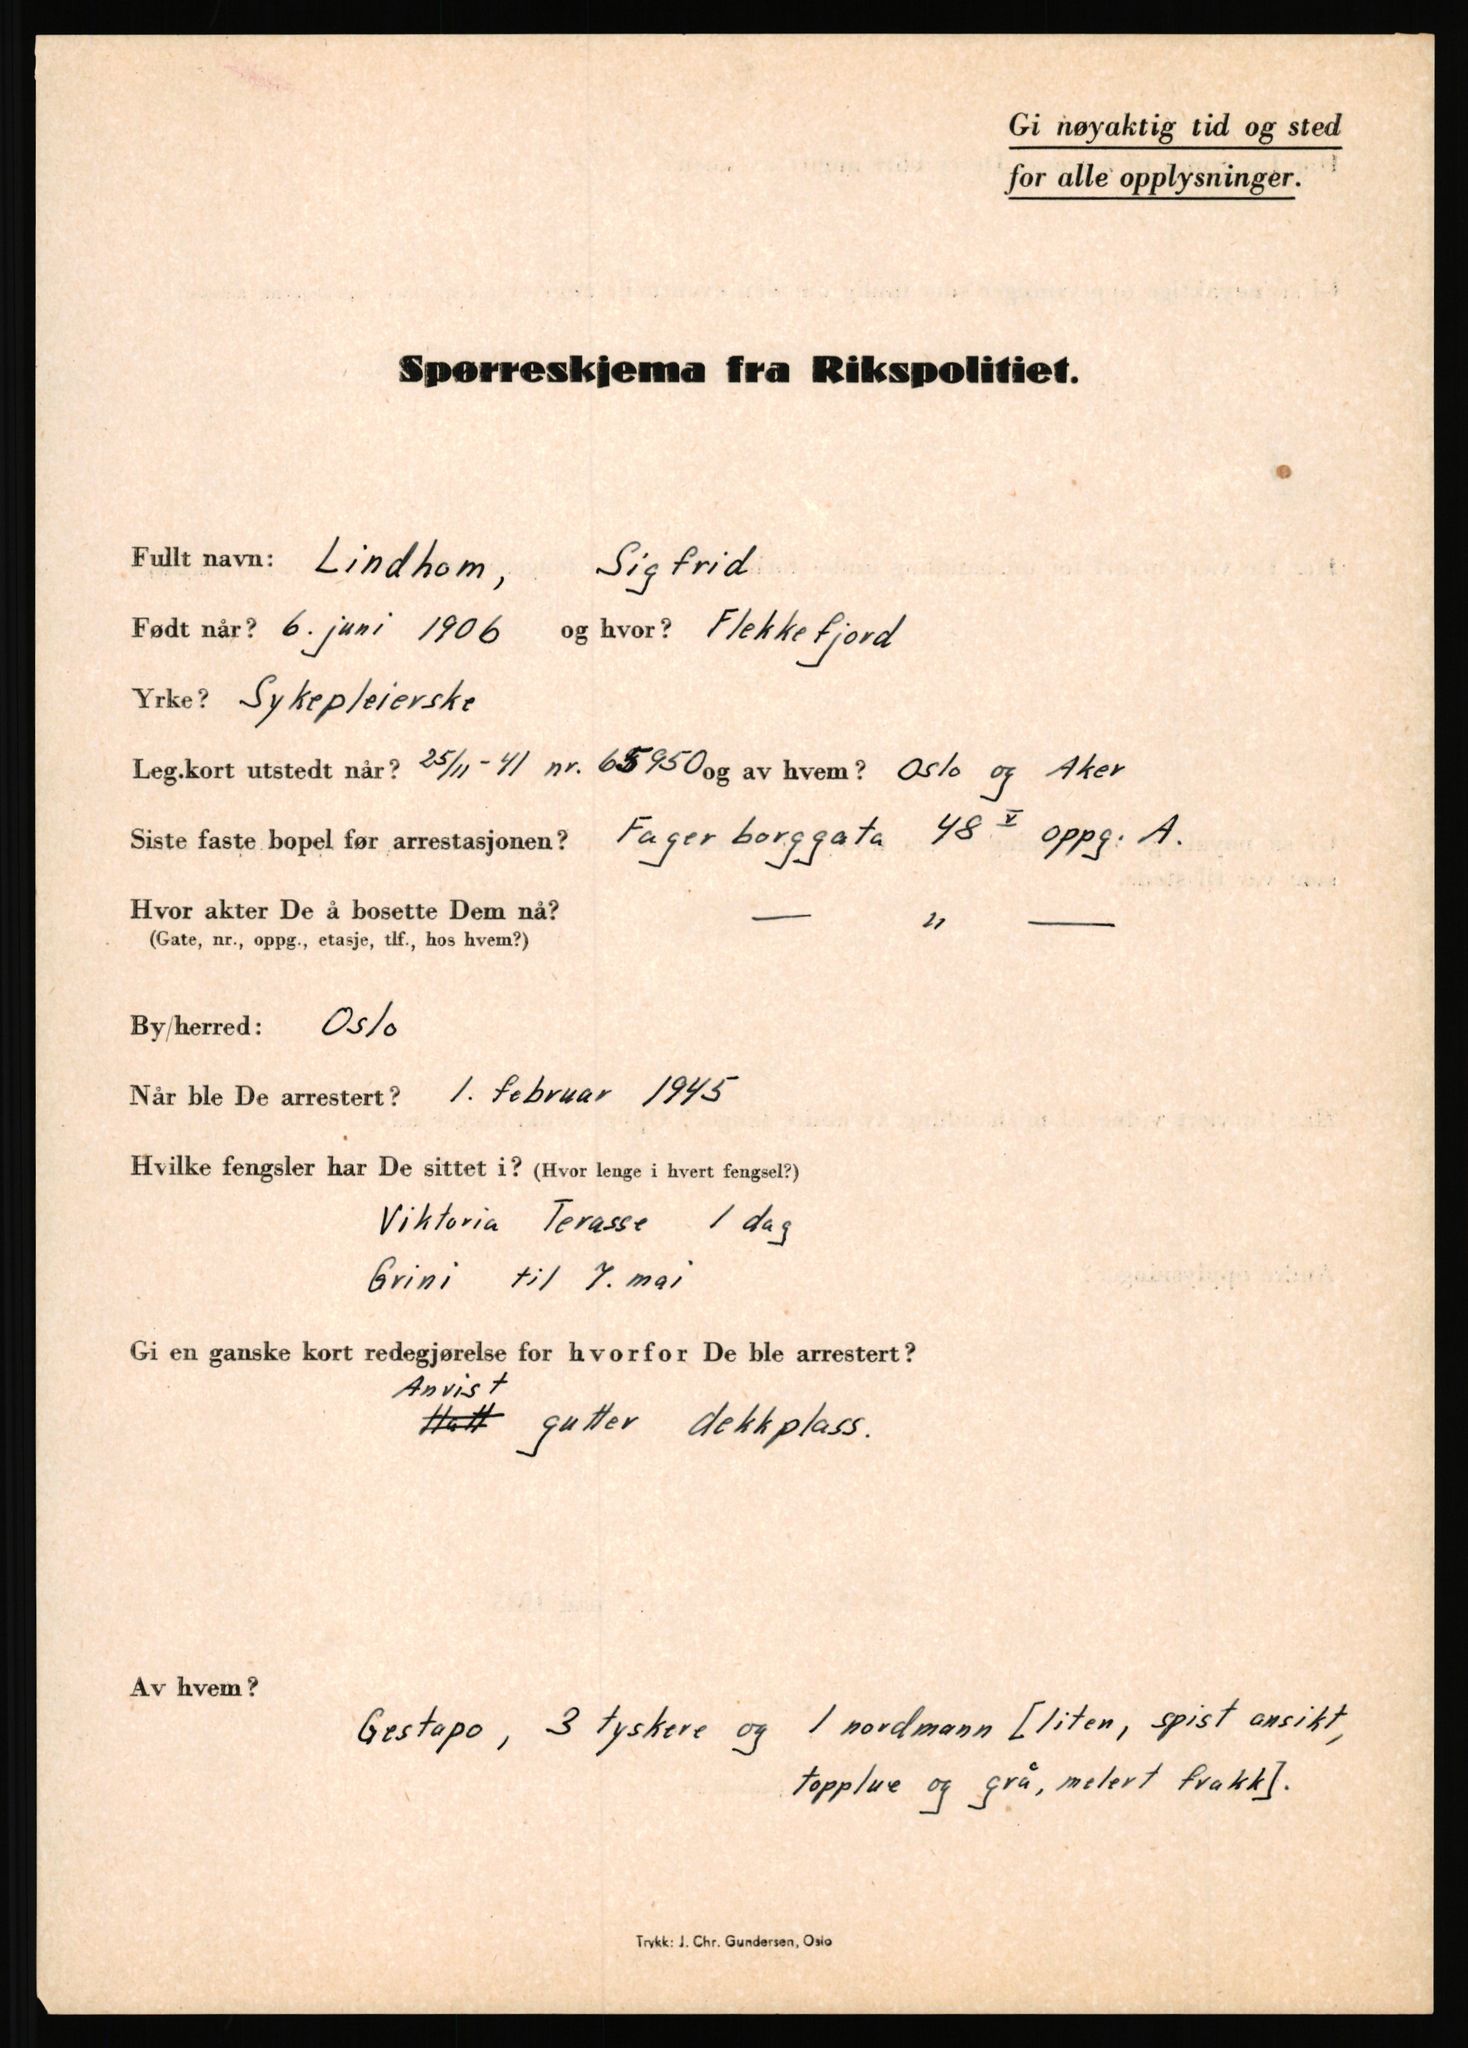 Gi nøyaktig tid og sted
for alle opplysninger.
Spørreskjema fra Rikspolitiet.
Fullt navn: Lindhom, Sigfrid
Født når? 6. juni 1906 og hvor? Flekkefjord
Yrke? Sykepleierske
Leg.kort utstedt når? 25/11-41 nr. 65950 og av hvem? Oslo og Aker
Siste faste bopel før arrestasjonen? Fagerborggata 48 V oppg. A.
Hvor akter De å bosette Dem nå? — " —
(Gate, nr., oppg., etasje, tlf., hos hvem?)
By/herred: Oslo
Når ble De arrestert? 1. februar 1945
Hvilke fengsler har De sittet i? (Hvor lenge i hvert fengsel?)
Viktoria Terasse 1 dag
Grini til 7. mai
Gi en ganske kort redegjørelse for hvorfor De ble arrestert?
Anvist
Hatt gutter dekkplass.
Av hvem?
Gestapo, 3 tyskere og 1 nordmann [liten, spist ansikt,
topplue og grå, melert frakk].
Trykk: J. Chr. Gundersen, Oslo